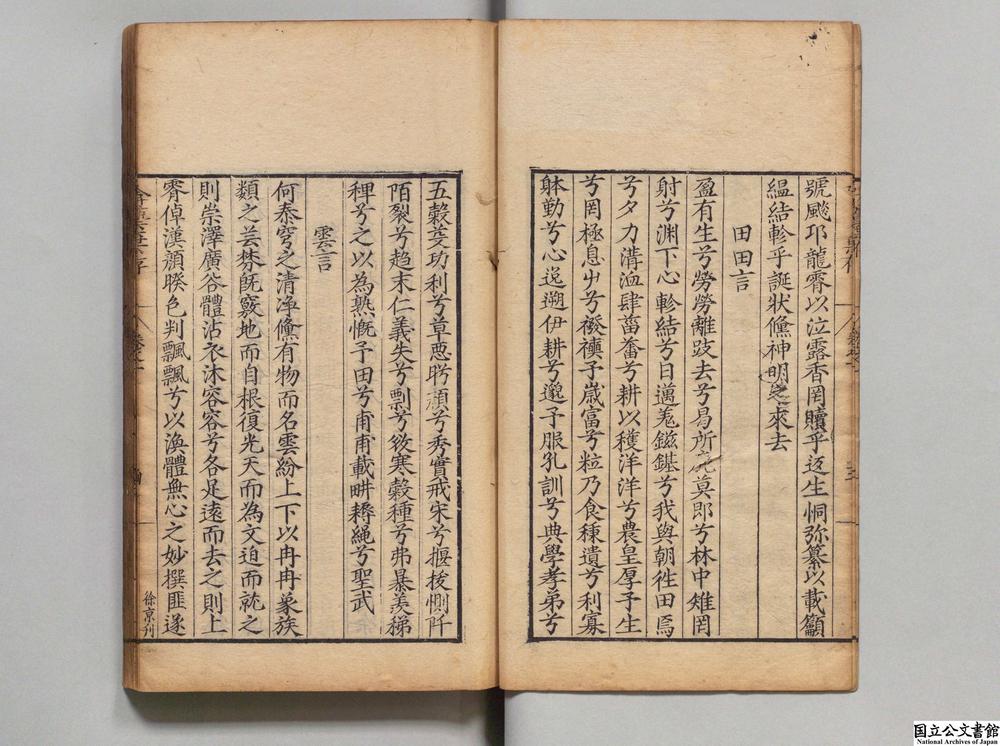 號飈邛龍霄以泣露香罔贖乎迓生恫弥纂以載籲
縕結軫乎誕狀儵神明之來去
田田言
盈有生兮勞勞離跂去兮昜所 莫郎兮林中雉罔
射兮渊下心軫結兮日邁羗鎡錤兮我與朝徃田焉
兮夕力溝洫肆菑畬兮耕以穫洋洋兮農皇厚予生
兮罔極息屮兮襏襫予嵗富兮粒乃食種遺兮利寡
躰勤兮心逸遡伊耕兮邈予服孔訓兮典學孝弟兮
五穀芟功利兮草恧盻頑兮秀實戒宋兮揠拔惻阡
陌裂兮趋末仁義失兮剽兮筊寒穀種兮弗暴羨稊
稗兮之以為熟慨予田兮甫甫載畊耨繩兮聖武
雲言
何泰穹之清凈儵有物而名雲紛上下以冉冉象族
類之芸棼旣竅地而自根復光天而為文迫而就之
則崇澤廣谷體沾衣沐容容兮各足遠而去之則上
霄倬漢顔睽色判飄飄兮以渙體無心之妙撰匪遂
徐京刋
国立公文書館
National Archives of Japan